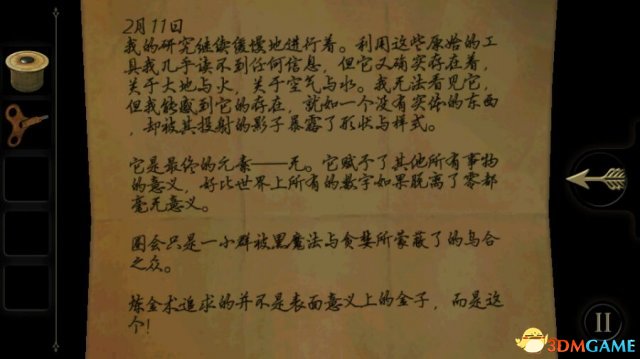 2月11日
我的研究继续缓慢地进行着。利用这些原始的工
具我几乎读不到任何信息，但它又确实存在着，
关于大地与火，关于空气与水。我无法看见它，
但我能感到它的存在，就如一个没有实体的东西
，却被其投射的影子暴露了形状与样式。
它是最终的元素——无。它赋予了其他所有事物
的意义，好比世界上所有的数字如果脱离了零都
毫无意义。
圈会只是一小群被黑魔法与贪婪所蒙蔽了的乌合
之众。
炼金术追求的并不是表面意义上的金子，而是这
个！
3DMGAME